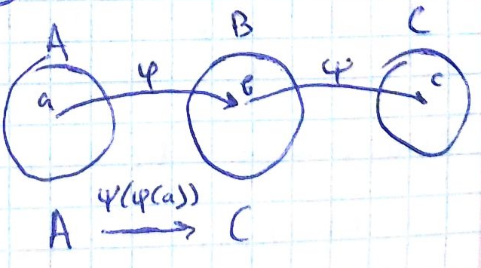 A B C
a φ b ψ c
A ψ(φ(a)) → C